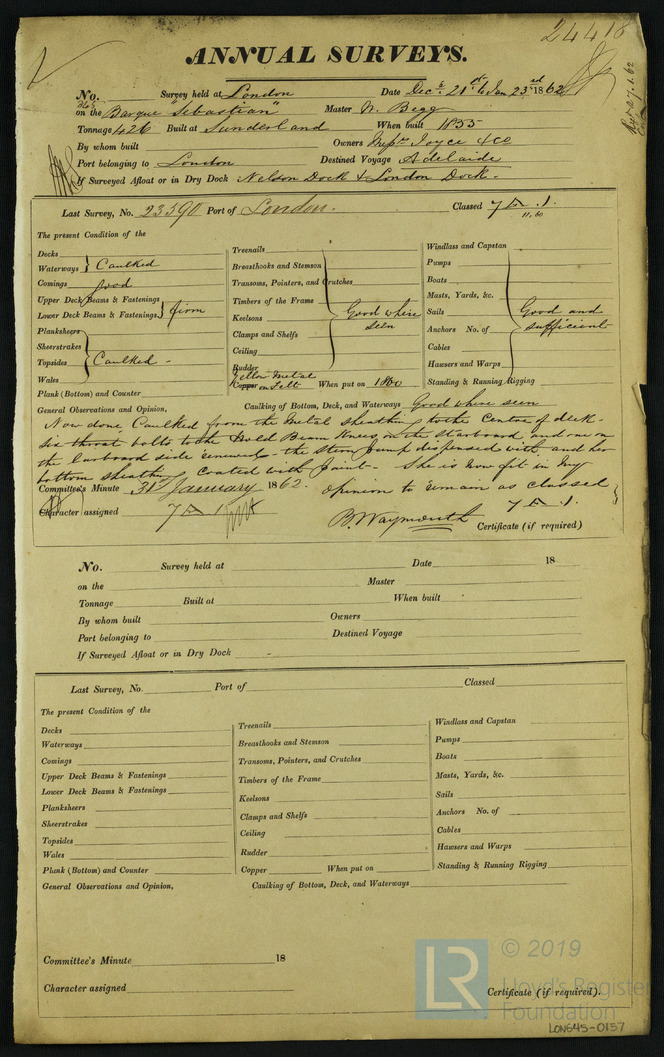 24418
ANNUAL SURVEYS.
No. 363 Survey held at London Date Decr 21st to Jan 23rd 1862
on the Barque "Sebastian" Master W. Begg
Tonnage 426 Built at Sunderland When built 1855
By whom built Owners Messrs Joyce & Co
Port belonging to London Destined Voyage Adelaide
If Surveyed Afloat or in Dry Dock Nelson Dock & London Dock.
Last Survey, No. 23590 Port of London. Classed 7 A .1.
11.60
The present Condition of the
Decks
Waterways Caulked
Comings good
Upper Deck Beams & Fastenings
Lower Deck Beams & Fastenings firm
Planksheers
Sheerstrakes
Topsides Caulked -
Wales
Plank (Bottom) and Counter
Treenails
Breasthooks and Stemson
Transoms, Pointers, and Crutches
Timbers of the Frame
Keelsons Good where seen
Clamps and Shelfs
Ceiling
Rudder
Yellow Metal
Copper on Felt When put on 1860
Windlass and Capstan
Pumps
Boats
Masts, Yards, &c.
Sails Good and
Anchors No. of sufficient
Cables
Hawsers and Warps
Standing & Running Rigging
General Observations and Opinion, Caulking of Bottom, Deck, and Waterways Good where seen
Now done, Caulked from the Metal sheathing to the Centre of deck -
six throat bolts to the Hold Beam Knees on the starboard, and one on
the larboard side renewed - the stern pump dispensed with, and her
bottom sheathing coated with paint - She is now fit in my
opinion to remain as classed
7 A .1.
Committee's Minute 31st January 1862.
Character assigned 7 A 1
B. Waymouth
Certificate (if required)
No. Survey held at Date 18
on the Master
Tonnage Built at When built
By whom built Owners
Port belonging to Destined Voyage
If Surveyed Afloat or in Dry Dock
Last Survey, No. Port of Classed
The present Condition of the
Decks
Waterways
Comings
Upper Deck Beams & Fastenings
Lower Deck Beams & Fastenings
Planksheers
Sheerstrakes
Topsides
Wales
Plank (Bottom) and Counter
Treenails
Breasthooks and Stemson
Transoms, Pointers, and Crutches
Timbers of the Frame
Keelsons
Clamps and Shelfs
Ceiling
Rudder
Copper When put on
Windlass and Capstan
Pumps
Boats
Masts, Yards, &c.
Sails
Anchors No. of
Cables
Hawsers and Warps
Standing & Running Rigging
General Observations and Opinion, Caulking of Bottom, Deck, and Waterways
Committee's Minute 18
Character assigned
Certificate (if required).
LR © 2019
Lloyd's Register
Foundation
LON645-0137